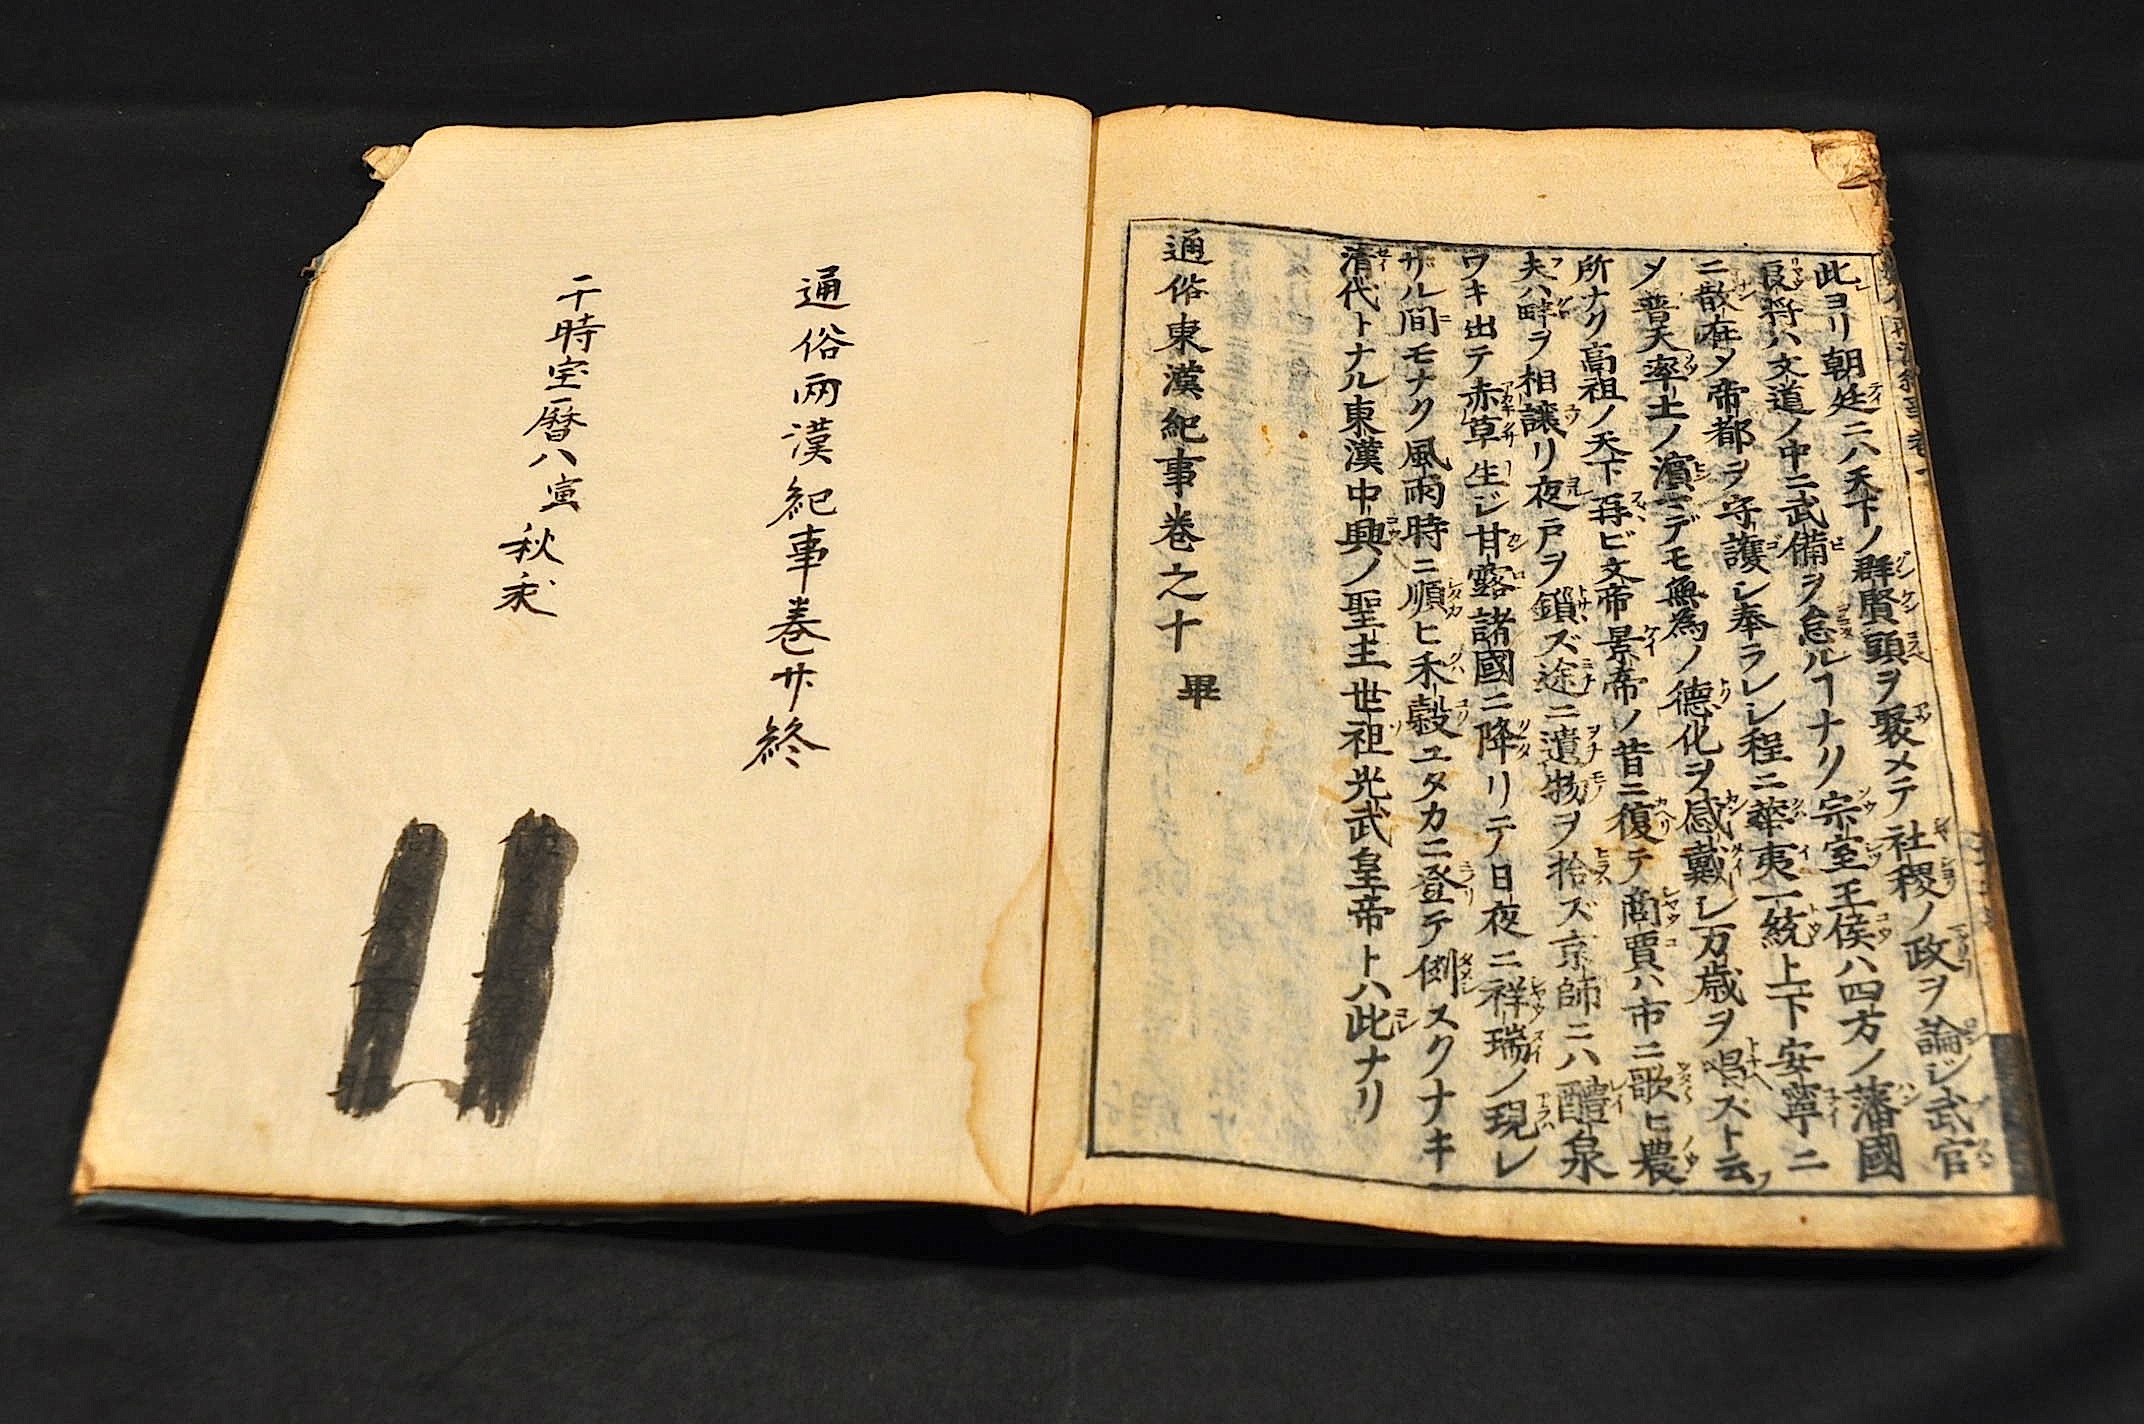 此ヨリ朝廷ニハ天下ノ群賢頭ヲ聚メテ社稷ノ政ヲ論ジ武官
良将ハ文道ノ中ニ武備ヲ怠ルヿナリ宗室王侯ハ四方ノ藩國
ニ散在メ帝都ヲ守護シ奉ラレシ程ニ華夷一統上下安寧ニ
メ普天率土ノ濱マデモ無為ノ德化ヲ感戴シ万歳ヲ唱ズト云
所ナク高祖ノ天下再ビ文帝景帝ノ昔ニ復テ商賈ハ市ニ歌ヒ農
夫ハ畔ヲ相讓リ夜戸ヲ鎖ズ途ニ遺物ヲ拾ズ京師ニハ醴泉
ワキ出テ赤草生ジ甘露諸國ニ降リテ日夜ニ祥瑞ノ現レ
ザル間モナク風雨時ニ順ヒ禾穀ユタカニ登テ例スクナキ
清代トナル東漢中興ノ聖主世祖光武皇帝トハ此ナリ
通俗東漢紀事巻之十 畢
通俗兩漢紀事巻廾終
干時宝暦八寅秋求